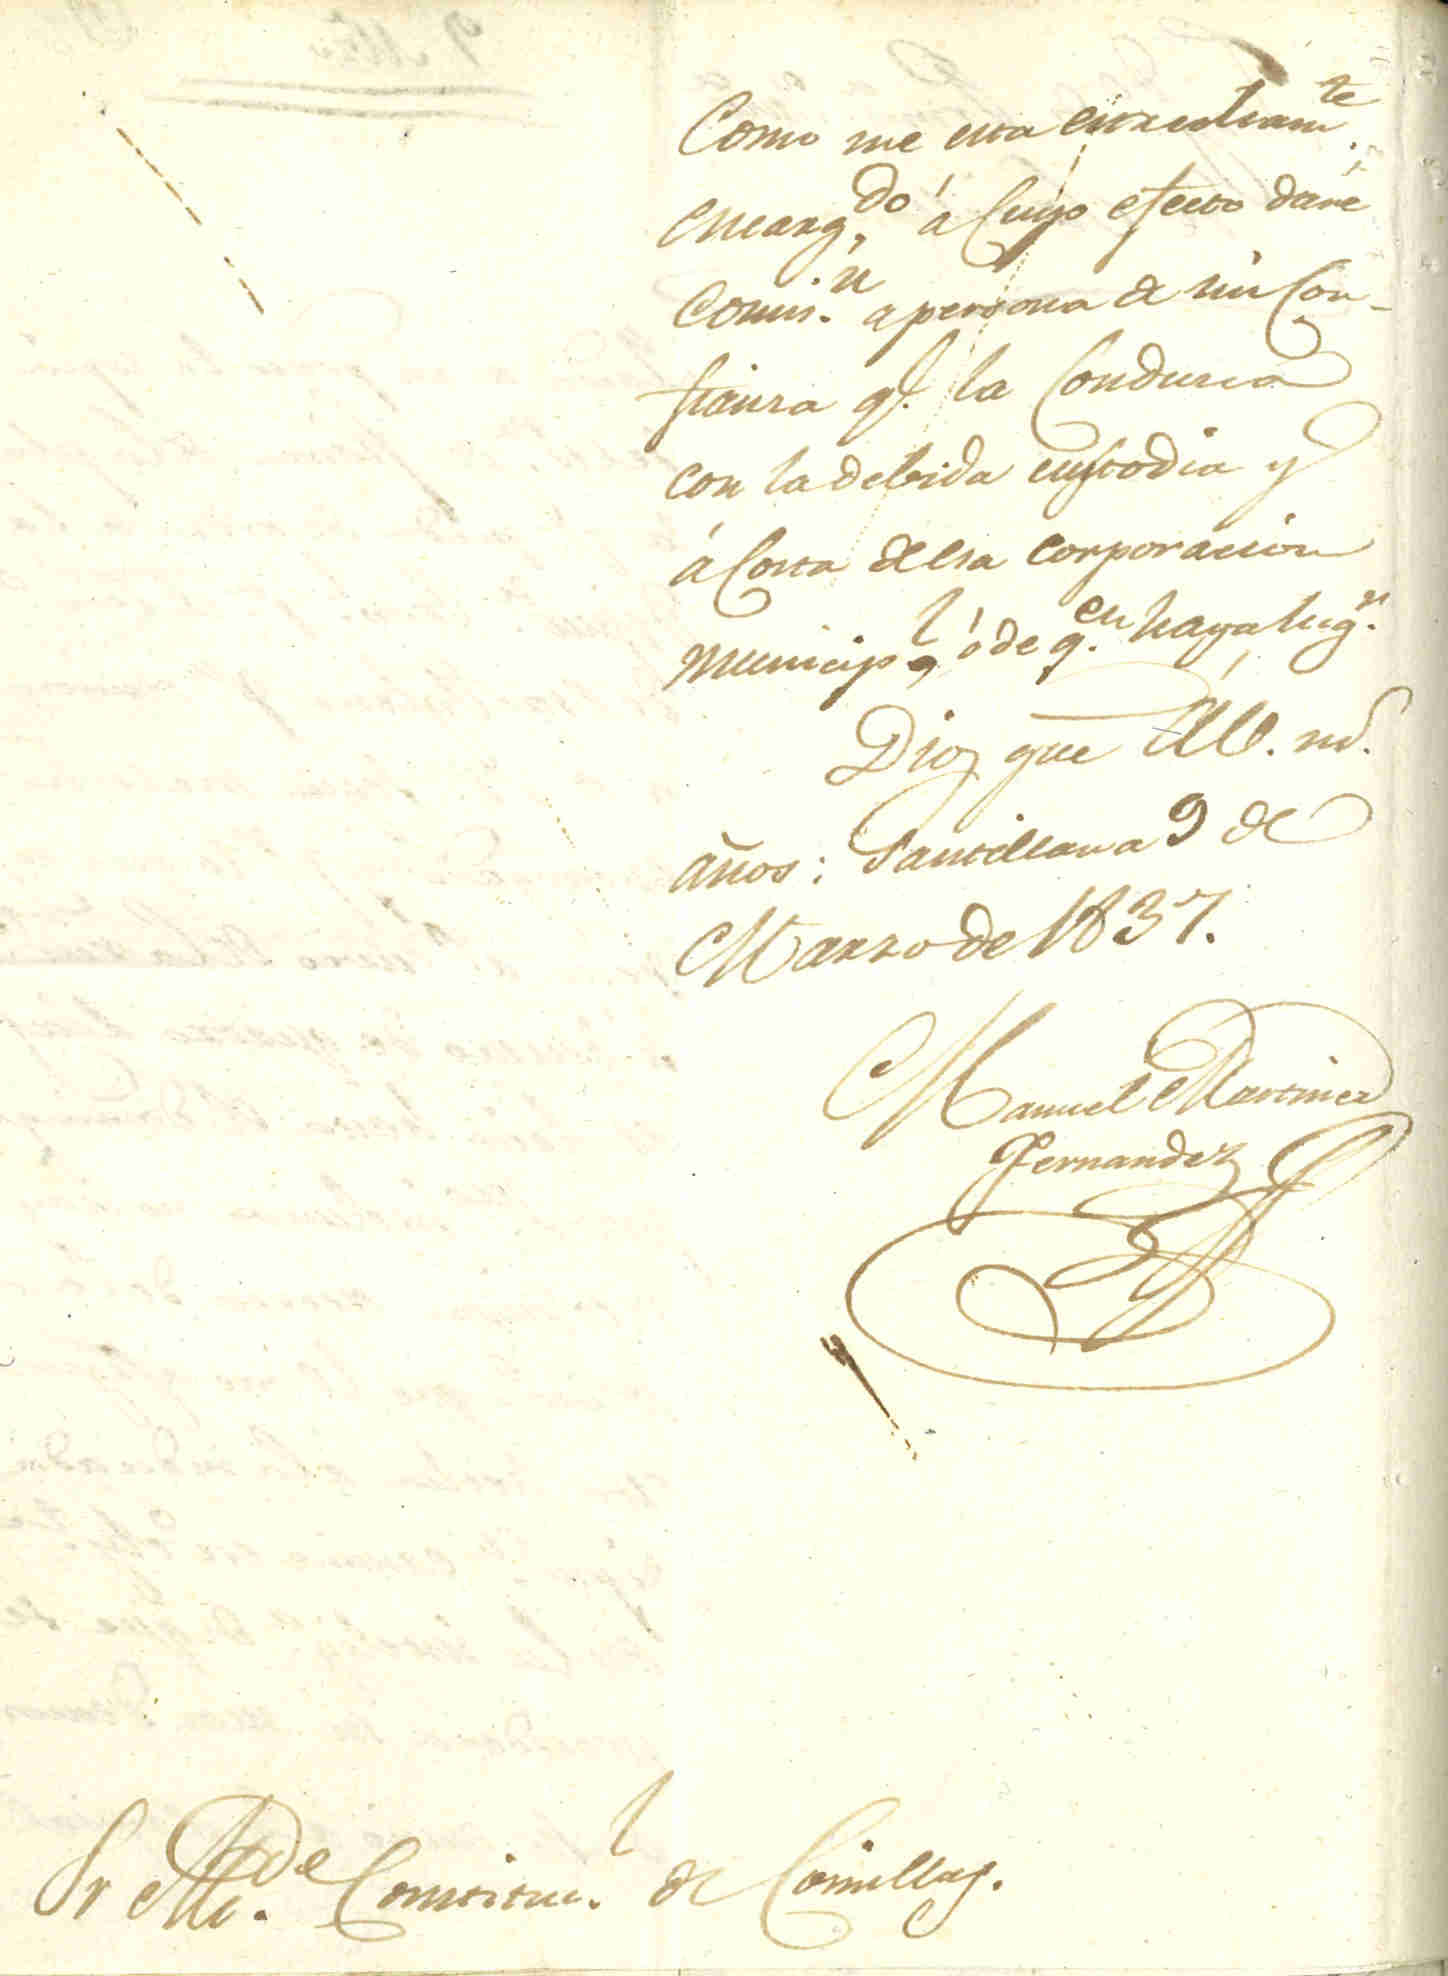 Como me esta estrectam.te
encarg.do á Cuyo efecto daré
Comis.n a persona de mi Con-
fianza q.e la Conduzca
con la debida custodia y
á Costa de esa corporacion
municip.l ó de q.en haya lug.r
Dios gue á V. m.s
años: Santillana 9 de
Marzo de 1837.
Manuel Martinez
Fernandez
Sr Alc.de Constitu.l de Comillas.